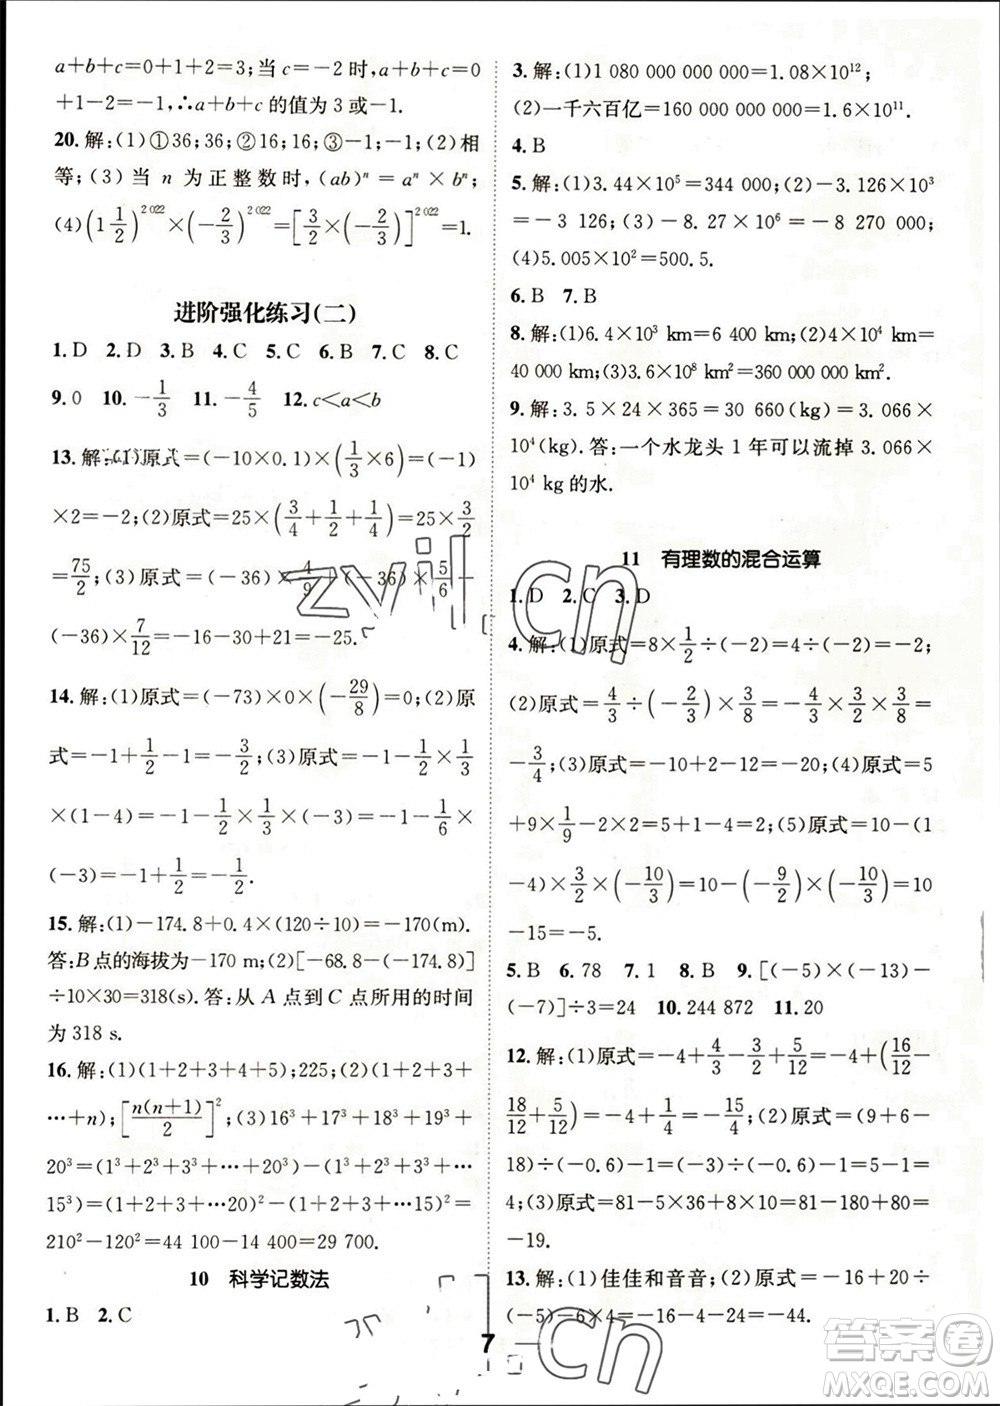 a+b+c=0+1+2=3;当 c=-2 时,a+b+c=0
+1-2=-1,∴a+b+c 的值为 3 或-1.
20.解:(1)①36;36;②16;16;③-1;-1;(2)相
等;(3)当 n 为正整数时,(ab)ⁿ=aⁿ×bⁿ;
(4)(1 1/2)²⁰²²×(-2/3)²⁰²²=[3/2×(-2/3)]²⁰²²=1.
进阶强化练习(二)
1.D 2.D 3.B 4.C 5.C 6.B 7.C 8.C
9.0 10.-1/3 11.-4/5 12.c<a<b
13.解:(1)原式=(-10×0.1)×(1/3×6)=(-1)
×2=-2;(2)原式=25×(3/4+1/2+1/4)=25×3/2
=75/2;(3)原式=(-36)×4/9-(-36)×5/6-
(-36)×7/12=-16-30+21=-25.
14.解:(1)原式=(-73)×0×(-29/8)=0;(2)原
式=-1+1/2-1=-3/2;(3)原式=-1-1/2×1/3
×(1-4)=-1-1/2×1/3×(-3)=-1-1/6×
(-3)=-1+1/2=-1/2.
15.解:(1)-174.8+0.4×(120÷10)=-170(m).
答:B点的海拔为-170 m;(2)[-68.8-(-174.8)]
÷10×30=318(s).答:从 A 点到 C 点所用的时间
为 318 s.
16.解:(1)(1+2+3+4+5);225;(2)(1+2+3+4+
…+n);[n(n+1)/2]²;(3)16³+17³+18³+19³+
20³=(1³+2³+3³+…+20³)-(1³+2³+3³+…
15³)=(1+2+3+…20)²-(1+2+3+…15)²=
210²-120²=44 100-14 400=29 700.
10 科学记数法
1.B 2.C
3.解:(1)1 080 000 000 000=1.08×10¹²;
(2)一千六百亿=160 000 000 000=1.6×10¹¹.
4.B
5.解:(1)3.44×10⁵=344 000;(2)-3.126×10³
=-3 126;(3)-8.27×10⁶=-8 270 000;
(4)5.005×10²=500.5.
6.B 7.B
8.解:(1)6.4×10³ km=6 400 km;(2)4×10⁴ km=
40 000 km;(3)3.6×10⁸ km²=360 000 000 km².
9.解:3.5×24×365=30 660(kg)=3.066×
10⁴(kg).答:一个水龙头 1 年可以流掉 3.066×
10⁴ kg的水.
11 有理数的混合运算
1.D 2.C 3.D
4.解:(1)原式=8×1/2÷(-2)=4÷(-2)=-2;
(2)原式=4/3÷(-2/3)×3/8=4/3×(-3/2)×3/8=
-3/4;(3)原式=-10+2-12=-20;(4)原式=5
+9×1/9-2×2=5+1-4=2;(5)原式=10-(1
-4)×3/2×(-10/3)=10-(-9/2)×(-10/3)=10
-15=-5.
5.B 6.78 7.1 8.B 9.[(-5)×(-13)-
(-7)]÷3=24 10.244 872 11.20
12.解:(1)原式=-4+4/3-3/2+5/12=-4+(16/12-
18/12+5/12)=-4+1/4=-15/4;(2)原式=(9+6-
18)÷(-0.6)-1=(-3)÷(-0.6)-1=5-1=
4;(3)原式=81-5×36+8×10=81-180+80=
-19.
13.解:(1)佳佳和音音;(2)原式=-16+20÷
(-5)-6×4=-16-4-24=-44.
7
zyjl.cn
zyjl.cn
答案圈
MXQE.COM